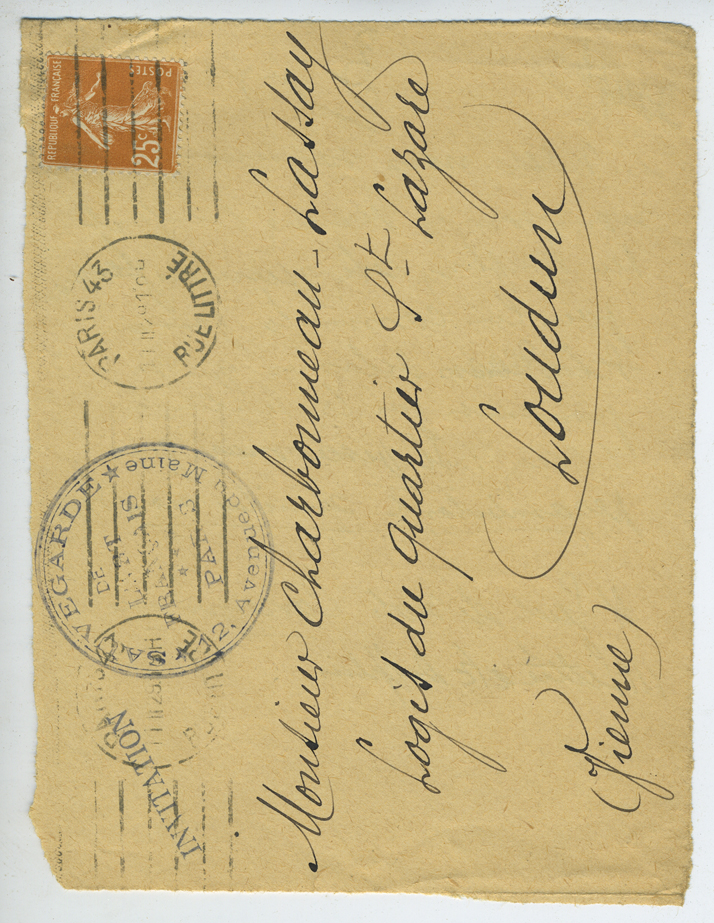 REPUBLIQUE FRANÇAISE
POSTES
25c
PARIS 43
RUE LITTRÉ
SAUVEGARDE
DE
L'ART
FRANÇAIS
PARIS
Avenue du Maine
INVITATION
Monsieur Charbonneau-Lassay
Logis du Quartier St Lazare
Loudun
(Vienne)